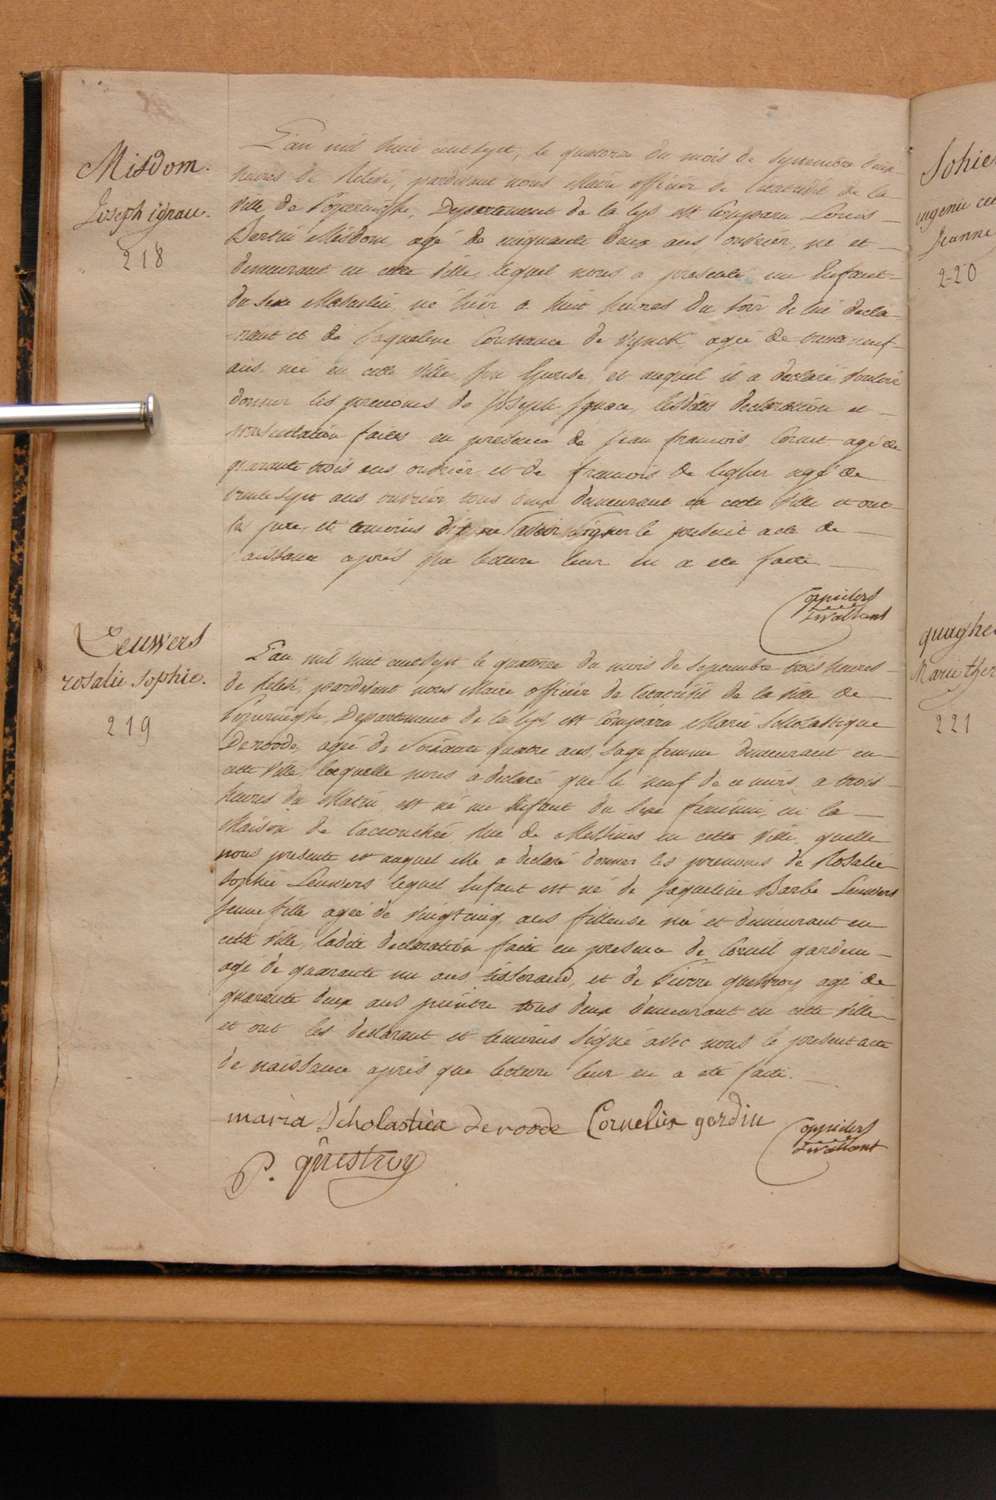 Misdom
Joseph ignace.
218
L'an mil huit cent sept, le quatorze du mois de septembre deux
heures de relevé, pardevant nous Maire officier de l'etat civil de la
Ville de Poperinghe, Departement de la Lys est Comparu Louis
Bertin Misdom, agé de cinquante deux ans, ouvrier, né et
demeurant en cette Ville, lequel nous a presenté un Enfant
du sexe Masculin, né hier a huit heures du soir de lui decla-
-rant et de Jaqueline Constance de Vynck, agée de trente neuf
ans, née en cette Ville, son Epouse, et auquel il a declaré vouloir
donner les prenoms de Joseph Ignace, lesdites declaration et
presentation faites en presence de Jean francois Cornet agé de
quarante trois ans ouvrier et de francois de legher agé de
trente sept ans ouvrier tous deux demeurant en cette Ville et ont
les pere et temoins dit ne savoir signer le present acte de
naissance aprés que lecture leur en a eté faite.
Coppieters
Leeuwers
rosalie sophie.
219
L'an mil huit cent sept le quatorze du mois de septembre trois heures
de relevé, pardevant nous Maire officier de l'etat civil de la Ville de
Poperinghe, Departement de la Lys est Comparu Marie Scholastique
Deroode, agée de soixante quatre ans, sage femme demeurant en
cette Ville, laquelle nous a declaré que le neuf de ce mois, a trois
heures du Matin est né un Enfant du sexe feminin, en la
Maison de l'accouchée, Rue de Messines en cette Ville, quelle
nous presente et auquel elle a declaré donner les prenoms de Rosalie
Sophie Leuwers lequel Enfant est né de Jaqueline Barbe Leuwers
jeune fille agée de Vingt cinq ans fileuse née et demeurant en
cette Ville, ladite declaration faite en presence de Corneil gardein
agé de quarante un ans tisserand, et de Pierre questroy agé de
quarante deux ans peintre tous deux demeurant en cette Ville
et ont les declarant et temoins signé avec nous le present acte
de naissance aprés que lecture leur en a eté faite.
maria Scholastica deroode Cornelis gardin
P. questroy
Coppieters
Sohie
eugenie
Jeanne
220
Marie ther
221